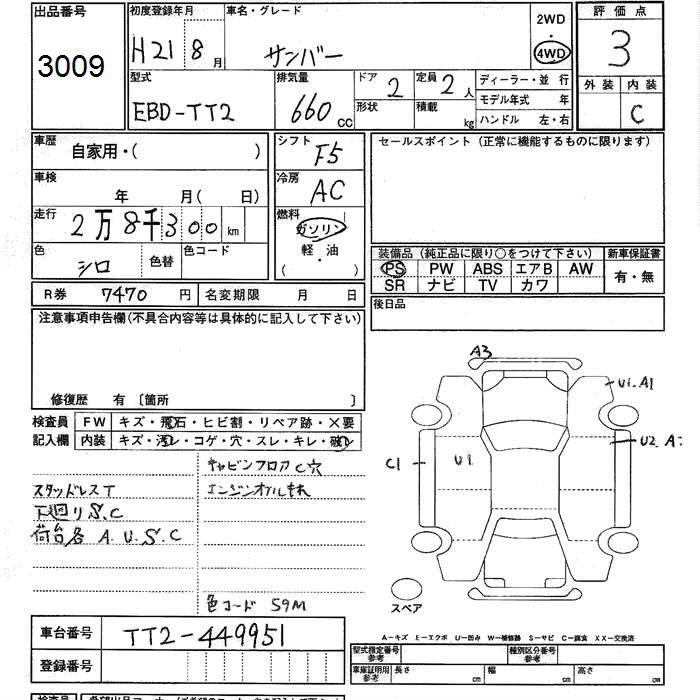 出品番号
3009
初度登録年月
H21 8 月
車名・グレード
サンバー
2WD
・
4WD
評価点
3
外装 内装
C
型式
EBD-TT2
排気量
660 cc
ドア 2
形状
定員 2 人
積載 kg
ディーラー・並 行
モデル年式 年
ハンドル 左・右
車歴
自家用・( )
車検
年 月( 日)
走行
2万8千300 km
色
シロ
色替
色コード
シフト
F5
冷房
AC
燃料
ガソリン
軽・油
( ・ )
セールスポイント (正常に機能するものに限ります)
装備品 (純正品に限り○をつけて下さい)
新車保証書
PS PW ABS エアB AW
SR ナビ TV カワ
有・無
R券 7470 円
名変期限 月 日
後日品
注意事項申告欄(不具合内容等は具体的に記入して下さい)
修復歴 有 〔箇所 〕
検査員
記入欄
FW キズ・飛石・ヒビ割・リペア跡・×要
内装 キズ・汚レ・コゲ・穴・スレ・キレ・破レ
キャビンフロアC穴
スタッドレスT
エンジンオイルもれ
下廻りS.C
荷台各 A.U.S.C
色コード 59M
A3
U1.A1
U2.A
C1
U1
スペア
A―キズ E―エクボ U―凹み W―補修跡 S―サビ C―腐食 XX―交換済
車台番号 TT2-449951
登録番号
型式指定番号
参考
種別区分番号
参考
車庫証明用
参考
長さ cm
幅 cm
高さ cm